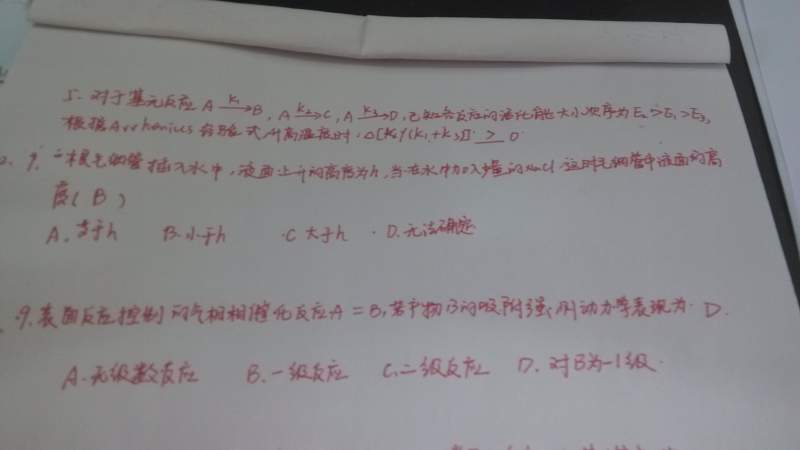 5. 对于基元反应 A —k₁→ B, A —k₂→ C, A —k₃→ D, 已知各反应的活化能大小次序为 E₂ > E₁ > E₃,
根据 Arrhenius 经验式 升高温度时, Δ[k₂/(k₁+k₃)] > 0
9. 一根毛细管插入水中, 液面上升的高度为h, 当在水中加入少量的NaCl 这时毛细管中液面的高
度( B )
A. 等于h B. 小于h C 大于h D. 无法确定
9. 表面反应控制的气相相催化反应A = B, 若产物B的吸附强, 则动力学表现为 D.
A. 无级数反应 B. 一级反应 C. 二级反应 D. 对B为-1级.